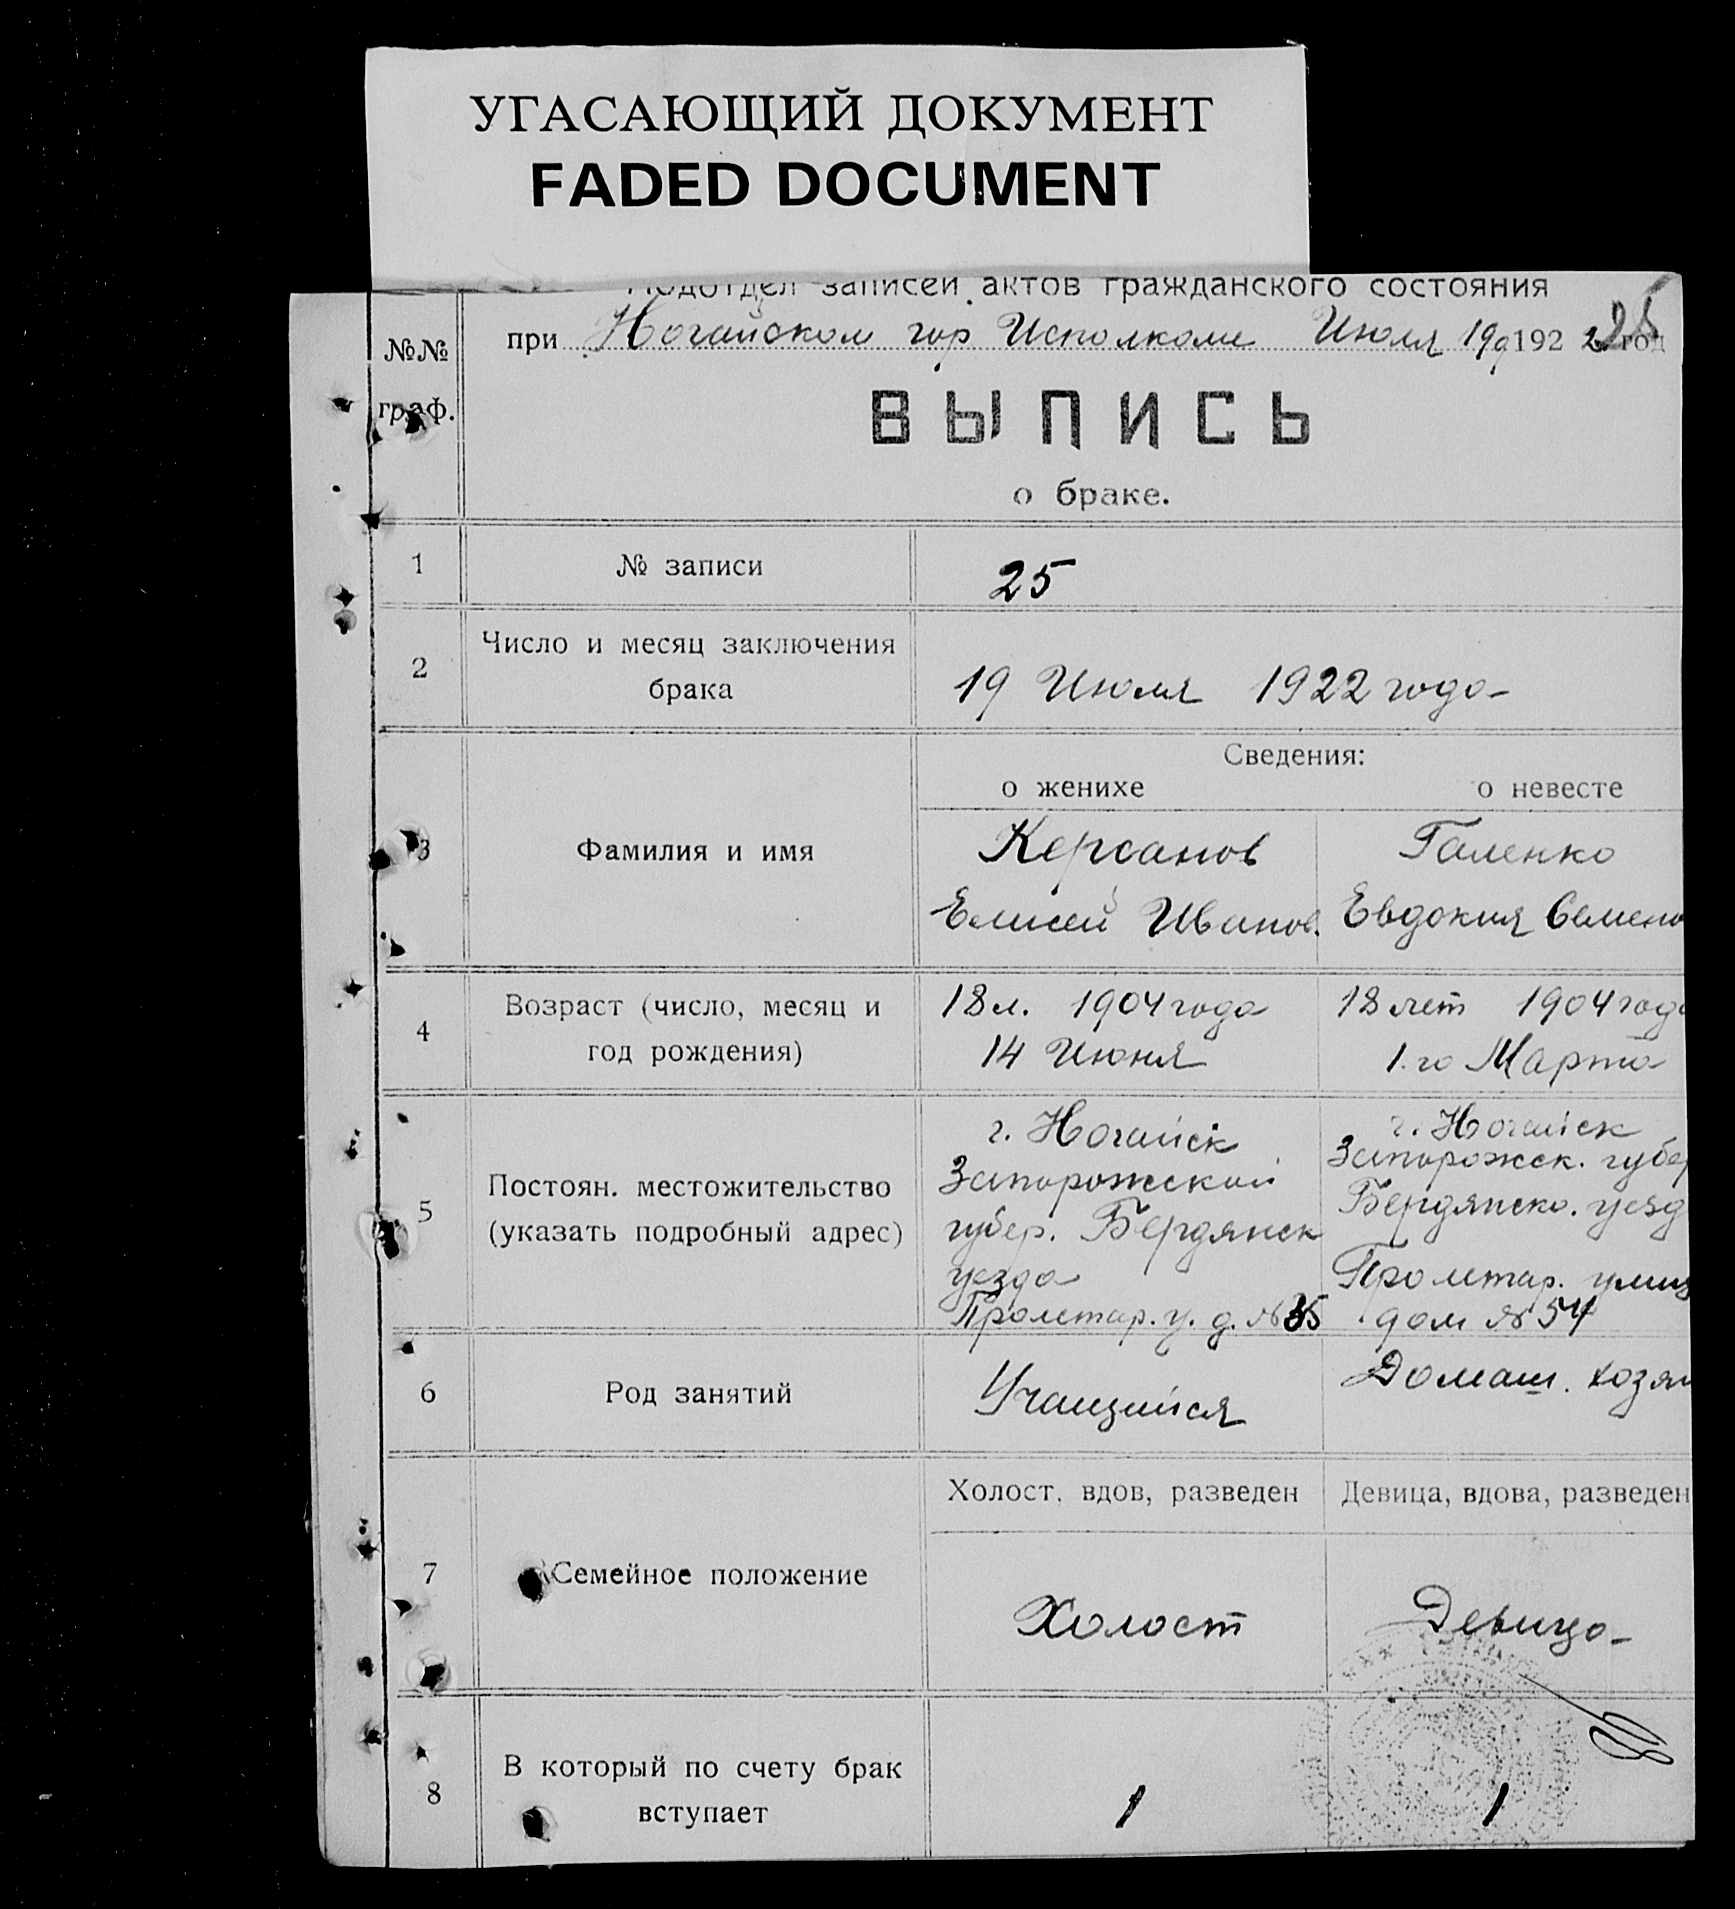 УГАСАЮЩИЙ ДОКУМЕНТ
FADED DOCUMENT
Подотдел записей актов гражданского состояния
при Ногайском гор Исполкоме Июля 19 д 1922 год
25
№№ граф.
ВЫПИСЬ
о браке.
1 № записи 25
2 Число и месяц заключения
брака 19 Июля 1922 года
Сведения:
о женихе о невесте
3 Фамилия и имя Керсанов Галенко
Елисей Иванов. Евдокия Семено
4 Возраст (число, месяц и 18 л. 1904 года 18 лет 1904 года
год рождения) 14 Июня 1.го Марта
5 Постоян. местожительство
(указать подробный адрес)
г. Ногайск
Запорожской
губер. Бердянск
уезда
Пролетар. у. д. № 35
г. Ногайск
Запорожск. губер
Бердянско. уезд
Пролетар. улиц
дом № 54
6 Род занятий Учащийся Домаш. хозяй
Холост, вдов, разведен Девица, вдова, разведен
7 Семейное положение Холост Девица
8 В который по счету брак
вступает 1 1